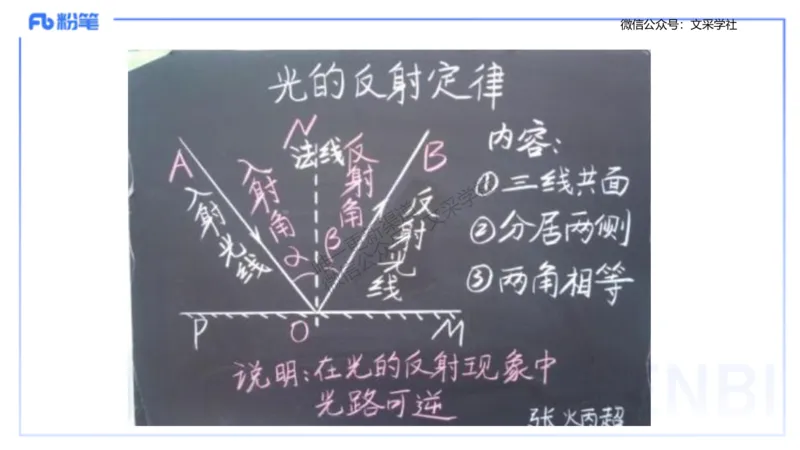 粉笔
微信公众号：文采学社
光的反射定律
A
N
B
法线
入射角
反射角
入射光线
反射光线
α
β
P
O
M
内容：
①三线共面
②分居两侧
③两角相等
说明：在光的反射现象中
光路可逆
张炳超